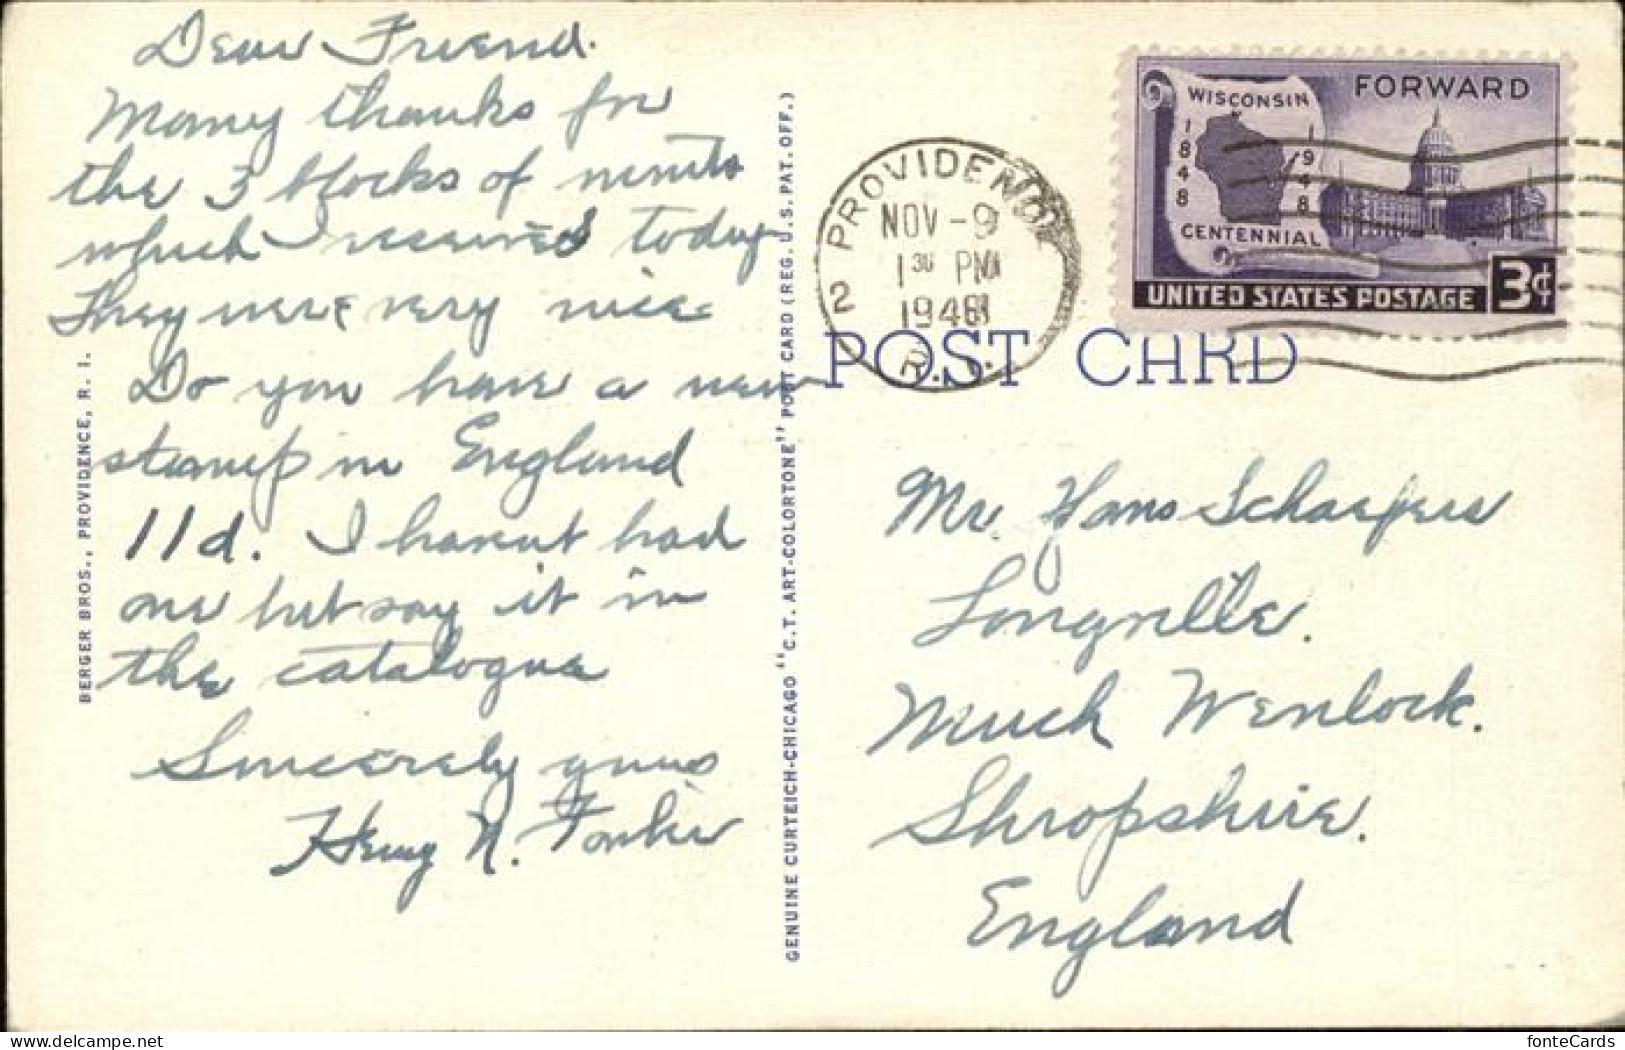 Dear Friend.
Many thanks for
the 3 blocks of
which I received today
They were very nice
Do you have a new
stamp in England
11d. I havent had
one but say it in
the catalogue
Sincerely yours
Henry N.
BERGER BROS., PROVIDENCE, R. I.
GENUINE CURTEICH-CHICAGO "C.T. ART-COLORTONE" POST CARD (REG. U.S. PAT. OFF.)
PROVIDENCE
2
NOV -9
1 30 PM
1948
R. I.
WISCONSIN
1848
1948
CENTENNIAL
FORWARD
UNITED STATES POSTAGE 3¢
POST CARD
Mr. Hans Schaefers
Longville.
Much Wenlock.
Shropshire.
England
delcampe.net
fonteCards